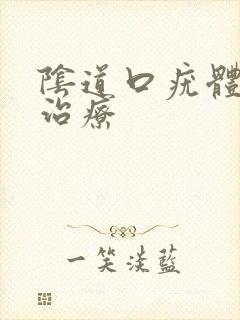 陰道口疣體
治療
一笑淡藍